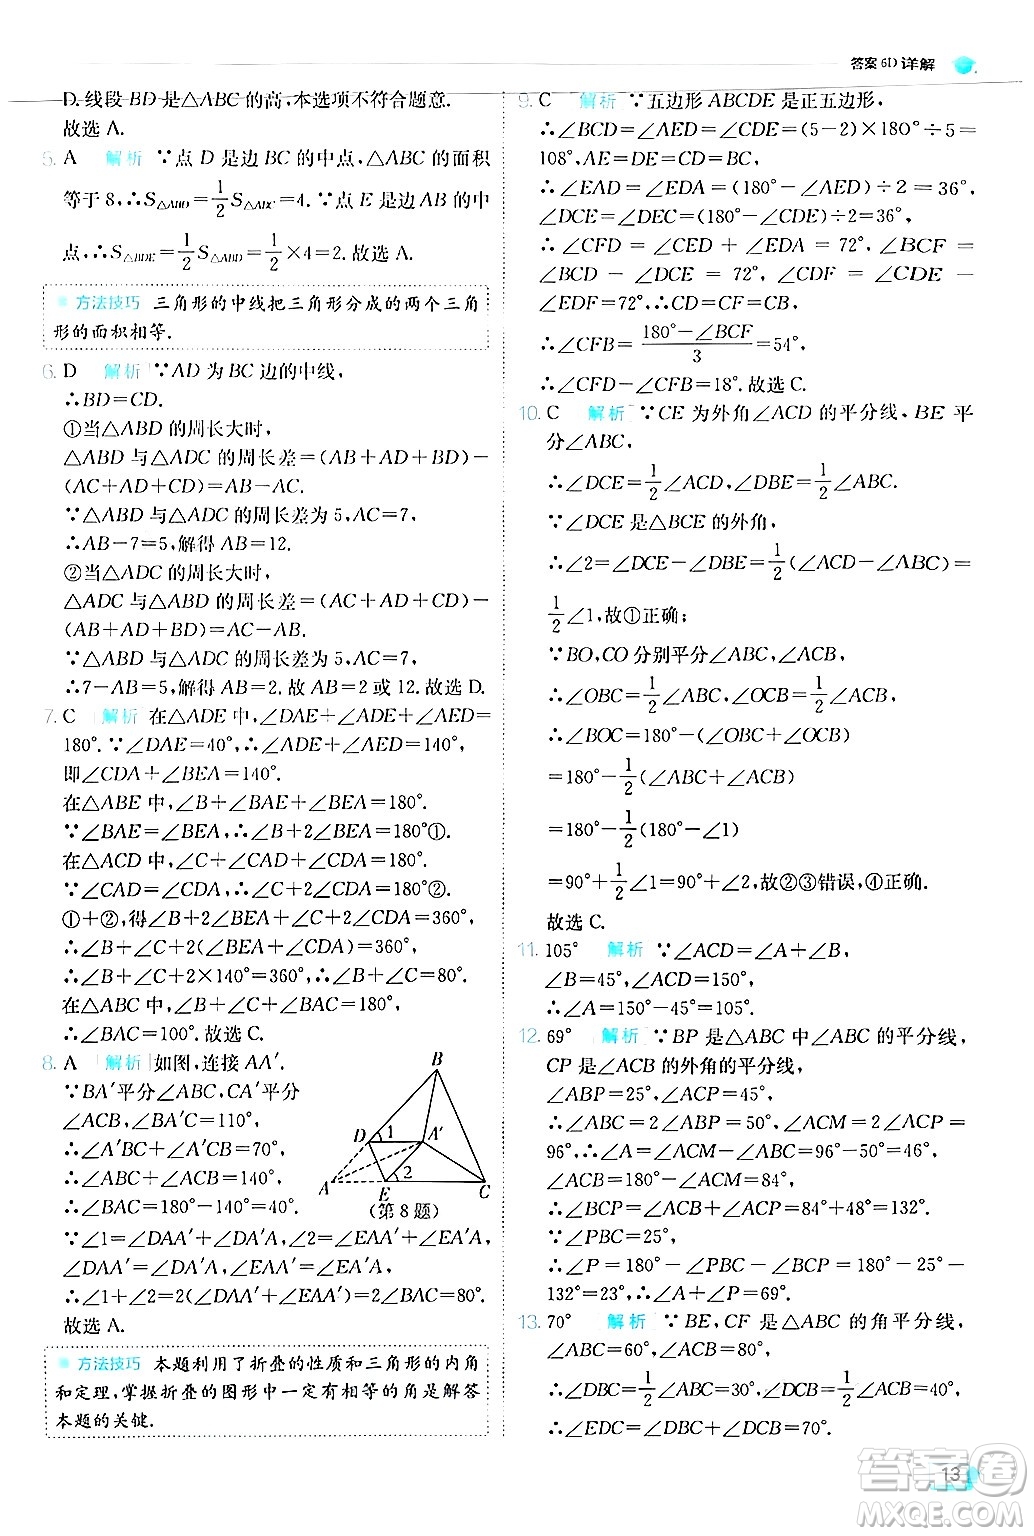 答案 6D 详解
D. 线段 BD 是△ABC 的高,本选项不符合题意.
故选 A.
5. A 解析 ∵点 D 是边 BC 的中点,△ABC 的面积
等于 8,∴S△ABD=1/2 S△ABC=4. ∵点 E 是边 AB 的中
点,∴S△BDE=1/2 S△ABD=1/2×4=2. 故选 A.
方法技巧 三角形的中线把三角形分成的两个三角
形的面积相等.
6. D 解析 ∵AD 为 BC 边的中线,
∴BD=CD.
①当△ABD 的周长大时,
△ABD 与△ADC 的周长差=(AB+AD+BD)-
(AC+AD+CD)=AB-AC.
∵△ABD 与△ADC 的周长差为 5,AC=7,
∴AB-7=5,解得 AB=12.
②当△ADC 的周长大时,
△ADC 与△ABD 的周长差=(AC+AD+CD)-
(AB+AD+BD)=AC-AB.
∵△ABD 与△ADC 的周长差为 5,AC=7,
∴7-AB=5,解得 AB=2. 故 AB=2 或 12. 故选 D.
7. C 解析 在△ADE 中,∠DAE+∠ADE+∠AED=
180°. ∵∠DAE=40°,∴∠ADE+∠AED=140°,
即∠CDA+∠BEA=140°.
在△ABE 中,∠B+∠BAE+∠BEA=180°.
∵∠BAE=∠BEA,∴∠B+2∠BEA=180°①.
在△ACD 中,∠C+∠CAD+∠CDA=180°.
∵∠CAD=∠CDA,∴∠C+2∠CDA=180°②.
①+②,得∠B+2∠BEA+∠C+2∠CDA=360°,
∴∠B+∠C+2(∠BEA+∠CDA)=360°,
∴∠B+∠C+2×140°=360°,∴∠B+∠C=80°.
在△ABC 中,∠B+∠C+∠BAC=180°,
∴∠BAC=100°. 故选 C.
8. A 解析 如图,连接 AA′.
∵BA′平分∠ABC,CA′平分
∠ACB,∠BA′C=110°,
∴∠A′BC+∠A′CB=70°,
∴∠ABC+∠ACB=140°,
∴∠BAC=180°-140°=40°.
B
D
1
A′
2
A
E
C
(第 8 题)
∵∠1=∠DAA′+∠DA′A,∠2=∠EAA′+∠EA′A,
∠DAA′=∠DA′A,∠EAA′=∠EA′A,
∴∠1+∠2=2(∠DAA′+∠EAA′)=2∠BAC=80°.
故选 A.
方法技巧 本题利用了折叠的性质和三角形的内角
和定理,掌握折叠的图形中一定有相等的角是解答
本题的关键.
9. C 解析 ∵五边形 ABCDE 是正五边形,
∴∠BCD=∠AED=∠CDE=(5-2)×180°÷5=
108°,AE=DE=CD=BC,
∴∠EAD=∠EDA=(180°-∠AED)÷2=36°,
∠DCE=∠DEC=(180°-∠CDE)÷2=36°,
∴∠CFD=∠CED+∠EDA=72°,∠BCF=
∠BCD-∠DCE=72°,∠CDF=∠CDE-
∠EDF=72°,∴CD=CF=CB,
∴∠CFB=(180°-∠BCF)/3=54°,
∴∠CFD-∠CFB=18°. 故选 C.
10. C 解析 ∵CE 为外角∠ACD 的平分线、BE 平
分∠ABC,
∴∠DCE=1/2∠ACD,∠DBE=1/2∠ABC.
∵∠DCE 是△BCE 的外角,
∴∠2=∠DCE-∠DBE=1/2(∠ACD-∠ABC)=
1/2∠1,故①正确;
∵BO,CO 分别平分∠ABC,∠ACB,
∴∠OBC=1/2∠ABC,∠OCB=1/2∠ACB,
∴∠BOC=180°-(∠OBC+∠OCB)
=180°-1/2(∠ABC+∠ACB)
=180°-1/2(180°-∠1)
=90°+1/2∠1=90°+∠2,故②③错误,④正确.
故选 C.
11. 105° 解析 ∵∠ACD=∠A+∠B,
∠B=45°,∠ACD=150°,
∴∠A=150°-45°=105°.
12. 69° 解析 ∵BP 是△ABC 中∠ABC 的平分线,
CP 是∠ACB 的外角的平分线,
∠ABP=25°,∠ACP=45°,
∴∠ABC=2∠ABP=50°,∠ACM=2∠ACP=
96°,∴∠ACB=180°-∠ACM=180°-96°=84°,
∴∠BCP=∠ACB+∠ACP=84°+48°=132°.
∵∠PBC=25°,
∴∠P=180°-∠PBC-∠BCP=180°-25°-
132°=23°,∴∠A+∠P=69°.
13. 70° 解析 ∵BE,CF 是△ABC 的角平分线,
∠ABC=60°,∠ACB=80°,
∴∠EBC=1/2∠ABC=30°,∠DCB=1/2∠ACB=40°,
∴∠EDC=∠EBC+∠DCB=70°.
13
答案卷
MXQE.COM